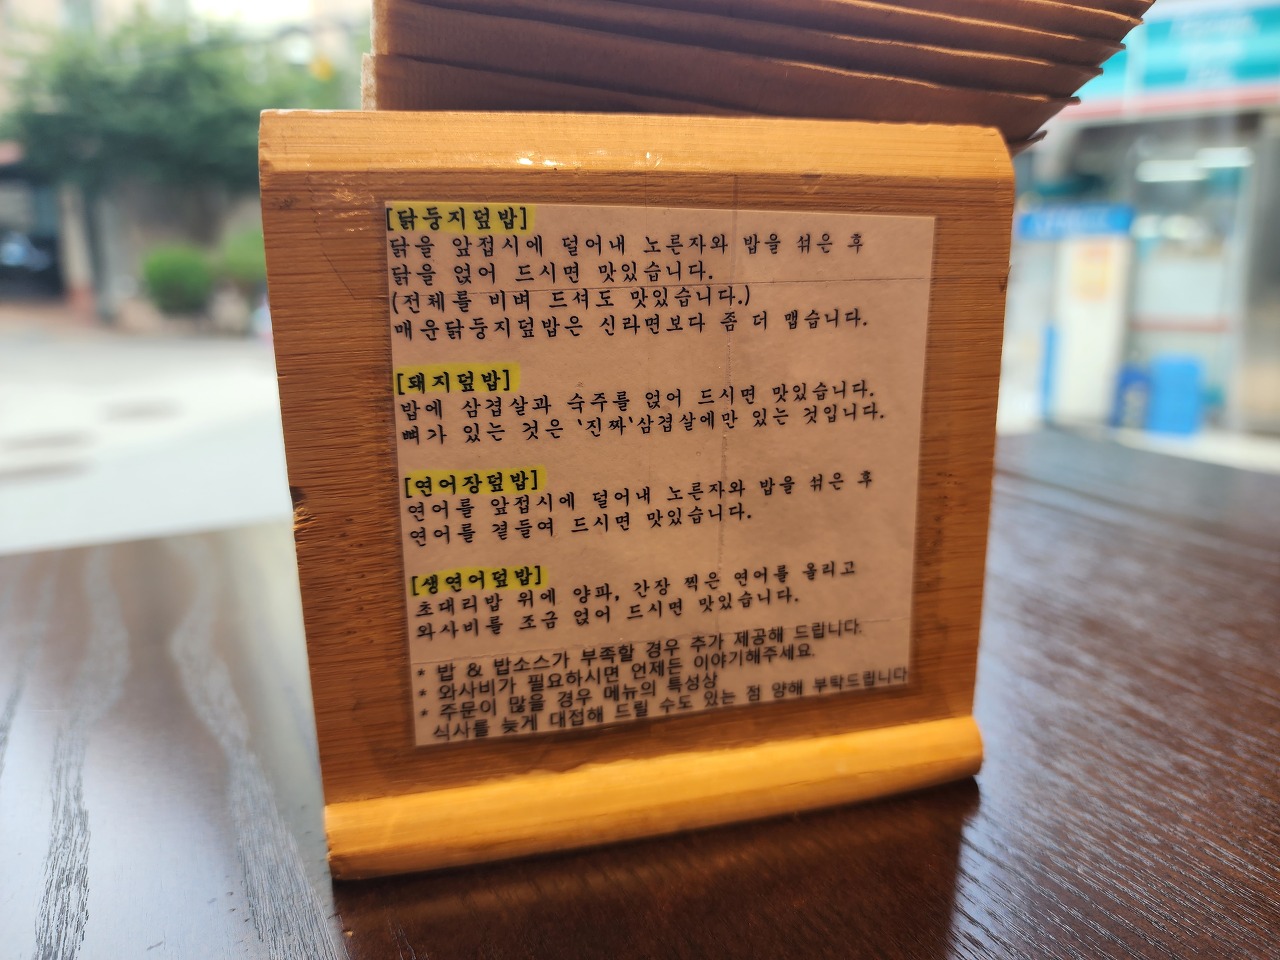 [닭둥지덮밥]
닭을 앞접시에 덜어내 노른자와 밥을 섞은 후
닭을 얹어 드시면 맛있습니다.
(전체를 비벼 드셔도 맛있습니다.)
매운닭둥지덮밥은 신라면보다 좀 더 맵습니다.
[돼지덮밥]
밥에 삼겹살과 숙주를 얹어 드시면 맛있습니다.
뼈가 있는 것은 '진짜'삼겹살에만 있는 것입니다.
[연어장덮밥]
연어를 앞접시에 덜어내 노른자와 밥을 섞은 후
연어를 곁들여 드시면 맛있습니다.
[생연어덮밥]
초대리밥 위에 양파, 간장 찍은 연어를 올리고
와사비를 조금 얹어 드시면 맛있습니다.
* 밥 & 밥소스가 부족할 경우 추가 제공해 드립니다.
* 와사비가 필요하시면 언제든 이야기해주세요.
* 주문이 많을 경우 메뉴의 특성상
식사를 늦게 대접해 드릴 수도 있는 점 양해 부탁드립니다